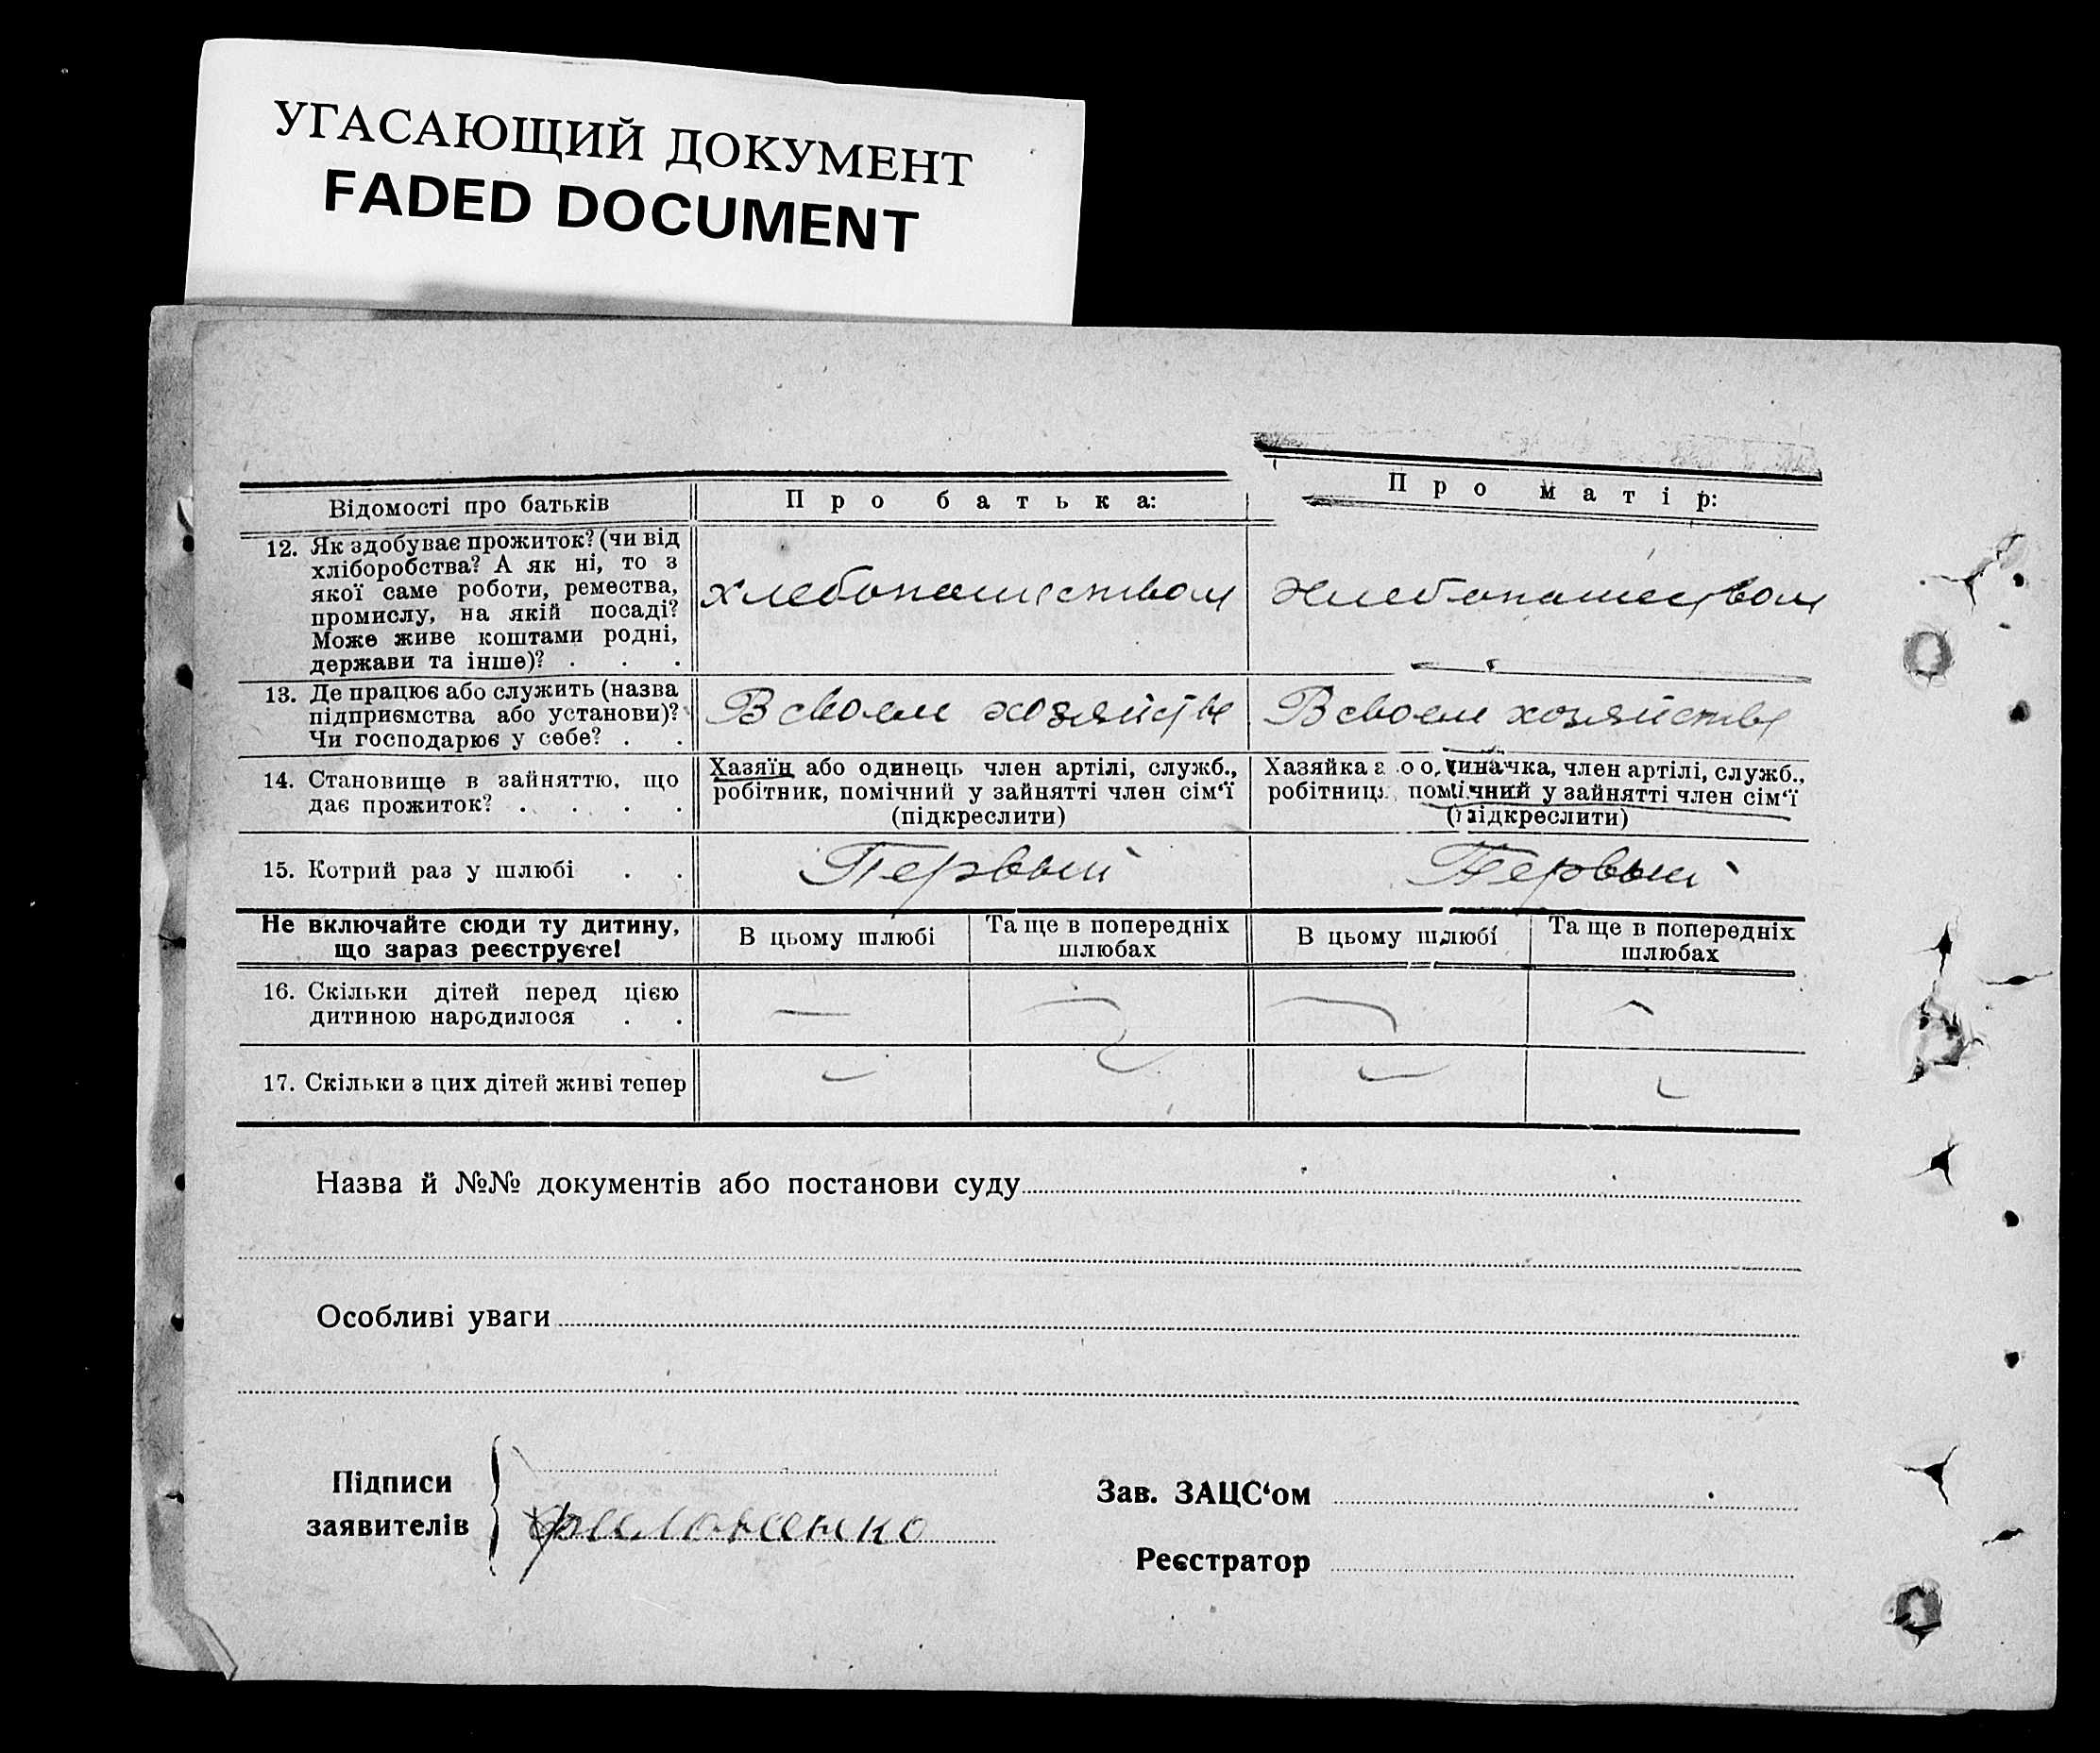 УГАСАЮЩИЙ ДОКУМЕНТ
FADED DOCUMENT
Відомості про батьків
Про батька:
Про матір:
12. Як здобуває прожиток? (чи від
хліборобства? А як ні, то з
якої саме роботи, ремества,
промислу, на якій посаді?
Може живе коштами родні,
держави та інше)? . . .
хлебопашеством
хлебопашеством
13. Де працює або служить (назва
підприємства або установи)?
Чи господарює у себе? . .
В своем хозяйстве
В своем хозяйстве
14. Становище в зайняттю, що
дає прожиток? . . . .
Хазяїн або одинець член артілі, служб.,
робітник, помічний у зайнятті член сім‘ї
(підкреслити)
Хазяйка або одиначка, член артілі, служб.,
робітниця, помічний у зайнятті член сім‘ї
(підкреслити)
15. Котрий раз у шлюбі . .
Первый
Первый
Не включайте сюди ту дитину,
що зараз реєструєте!
В цьому шлюбі
Та ще в попередніх
шлюбах
В цьому шлюбі
Та ще в попередніх
шлюбах
16. Скільки дітей перед цією
дитиною народилося . .
— — — —
17. Скільки з цих дітей живі тепер
— — — —
Назва й №№ документів або постанови суду
Особливі уваги
Підписи
заявителів
Зав. ЗАЦС‘ом
Реєстратор